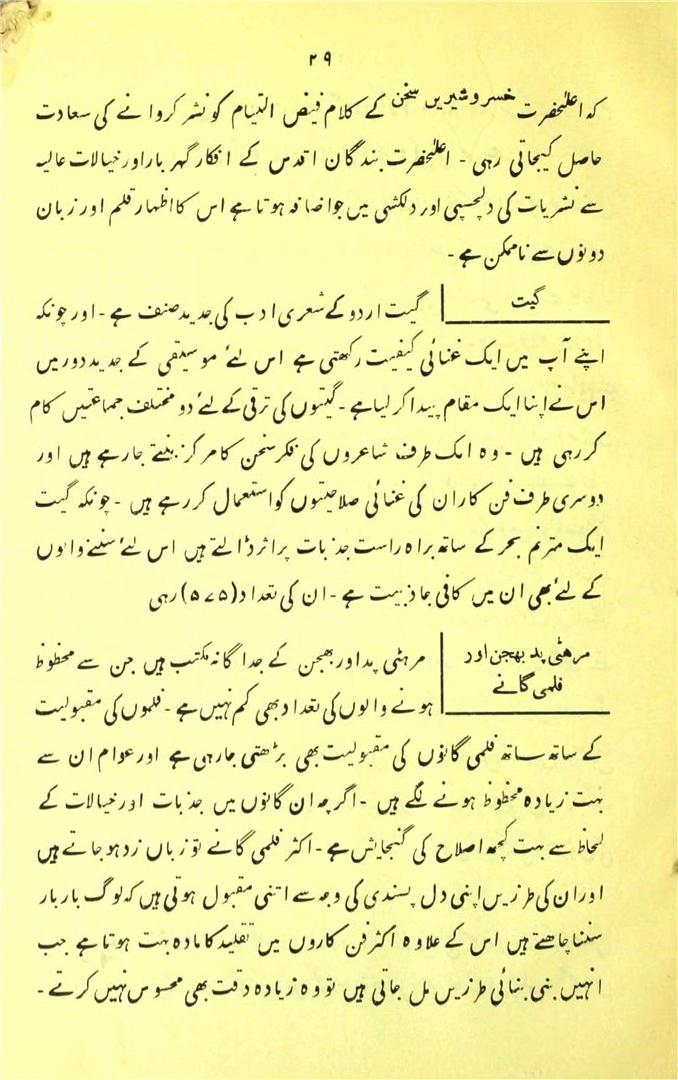 ۲۹
کہ اعلٰحضرت خسرو شیریں سخن کے کلام فیض التیام کو نشر کروانے کی سعادت
حاصل کیجاتی رہی - اعلٰحضرت بندگان اقدس کے افکار گہر بار اور خیالات عالیہ
سے نشریات کی دلچسپی اور دلکشی میں جو اضافہ ہوتا ہے اس کا اظہار قلم اور زبان
دونوں سے ناممکن ہے -
گیت
گیت اردو کے شعری ادب کی جدید صنف ہے - اور چونکہ
اپنے آپ میں ایک غنائی کیفیت رکھتی ہے اس لئے موسیقی کے جدید دور میں
اس نے اپنا ایک مقام پیدا کر لیا ہے - گیتوں کی ترقی کے لئے دو مختلف جماعتیں کام
کر رہی ہیں - وہ ایک طرف شاعروں کی فکر سخن کا مرکز بنتے جارہے ہیں اور
دوسری طرف فن کار ان کی غنائی صلاحیتوں کو استعمال کر رہے ہیں - چونکہ گیت
ایک مترنم بحر کے ساتھ براہ راست جذبات پر اثر ڈالتے ہیں اس لئے سننے والوں
کے لئے بھی ان میں کافی جاذبیت ہے - ان کی تعداد (۵۷۵) رہی
مرھٹی پد بھجن اور
فلمی گانے
مرہٹی پد اور بھجن کے جداگانہ مکتب ہیں جن سے محظوظ
ہونے والوں کی تعداد بھی کم نہیں ہے - فلموں کی مقبولیت
کے ساتھ ساتھ فلمی گانوں کی مقبولیت بھی بڑھتی جارہی ہے اور عوام ان سے
بہت زیادہ محظوظ ہونے لگے ہیں - اگرچہ ان گانوں میں جذبات اور خیالات کے
لحاظ سے بہت کچھ اصلاح کی گنجایش ہے - اکثر فلمی گانے تو زباں زد ہو جاتے ہیں
اور ان کی طرزیں اپنی دل پسندی کی وجہ سے اتنی مقبول ہوتی ہیں کہ لوگ بار بار
سننا چاھتے ہیں اس کے علاوہ اکثر فن کاروں میں تقلید کا مادہ بہت ہوتا ہے جب
انہیں بنی بنائی طرزیں مل جاتی ہیں تو وہ زیادہ دقت بھی محسوس نہیں کرتے -